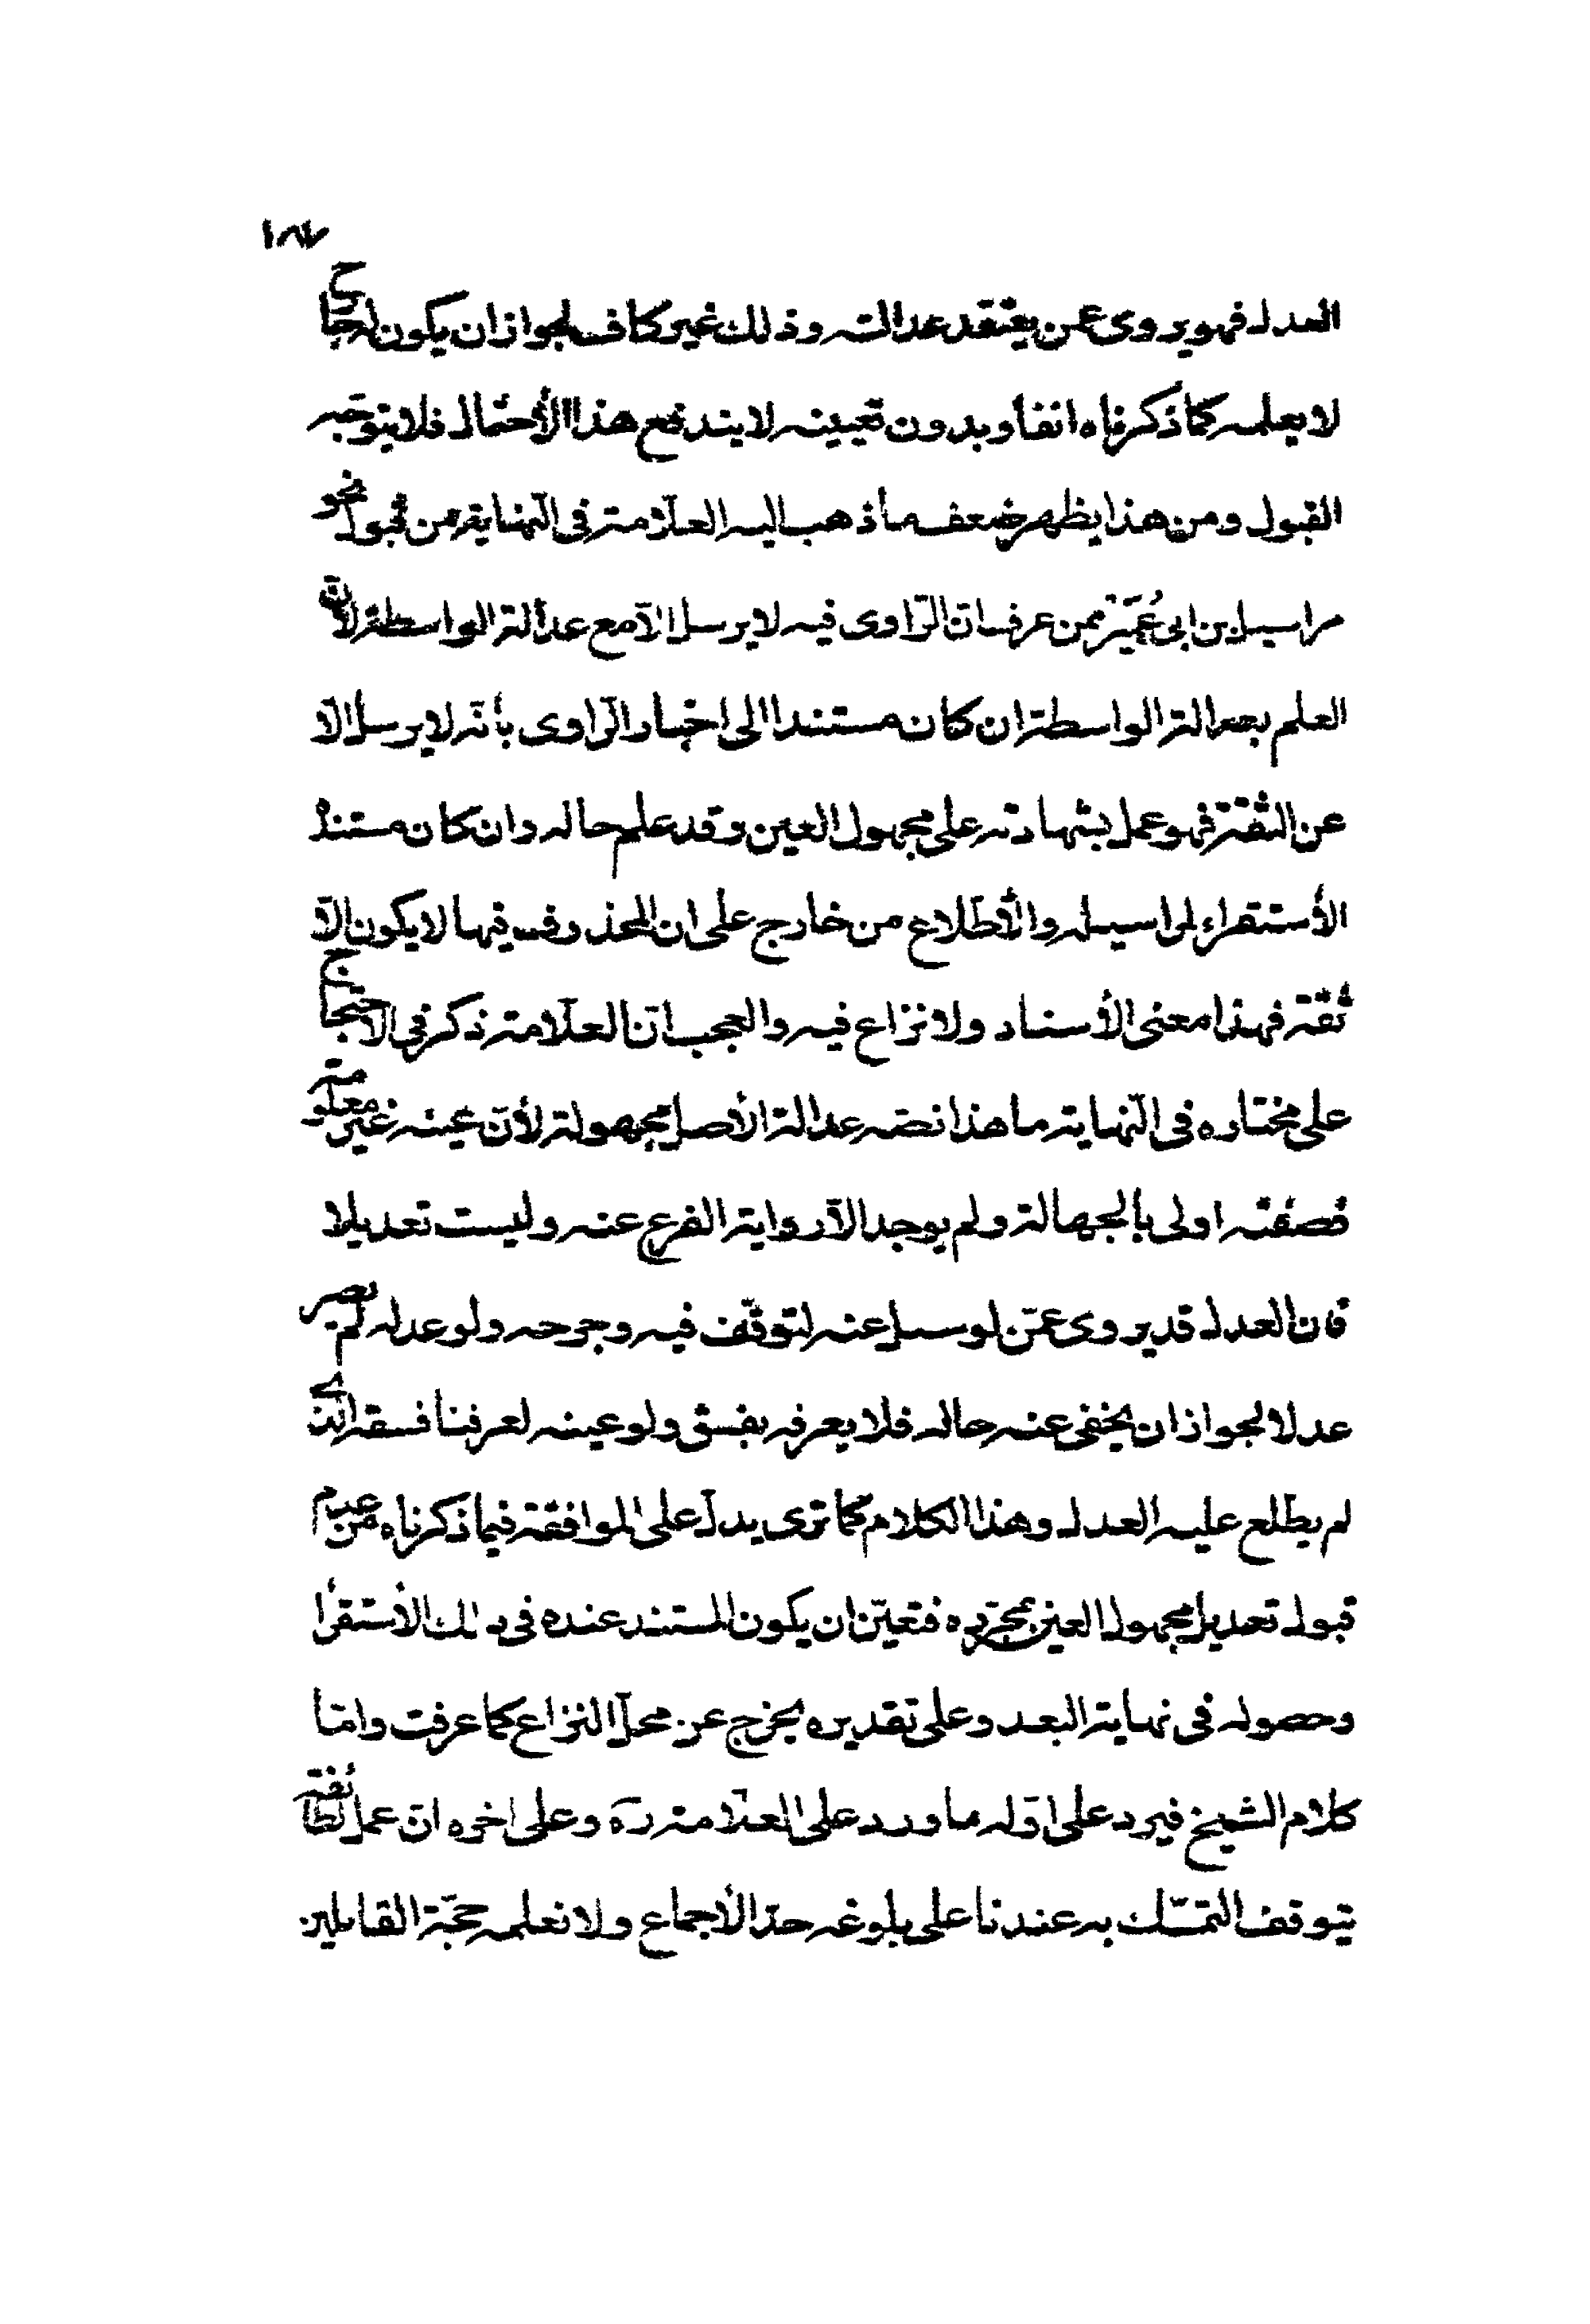 ١٨٧
العدل فهو يروى عمن يعتقد عدالته وذلك غير كاف لجواز ان يكون له جارح
لا يعلمه كما ذكرناه انفا وبدون تعيينه لا يندفع هذا الأحتمال فلا يتوجه
القبول ومن هذا يظهر ضعف ما ذهب اليه العلّامة فى النّهاية من قبول نحو
مراسيل بن ابى عُمَيْر ممن عرف انّ الرّاوى فيه لا يرسل الّا مع عدالة الواسطة لأنّ
العلم بعدالة الواسطة ان كان مستندا الى اخبار الرّاوى بأنّه لا يرسل الّا
عن الثّقة فهو عمل بشهادته على مجهول العين وقد علم حاله وان كان مستنده
الأستقراء لمراسيله والأطّلاع من خارج على ان المحذوف فيها لا يكون الّا
ثقة فهذا معنى الأسناد ولا نزاع فيه والعجب انّ العلّامة ذكر فى الاحتجاج
على مختاره فى النّهاية ما هذا نصّه عدالة الأصل مجهولة لأنّ عينه غير معلومة
فصفته اولى بالجهالة ولم يوجد الّا رواية الفرع عنه وليست تعديلا
فان العدل قد يروى عمّن لو سيل عنه لتوقّف فيه وجرحه ولو عدله لم يصر
عدلا لجواز ان يخفى عنه حاله فلا يعرفه بفسق ولو عينه لعرفنا فسقه الذى
لم يطلع عليه العدل وهذا الكلام كما ترى يدلّ على الموافقة فيما ذكرناه من عدم
قبول تعديل مجهول العين بمجرّده فتعيّن ان يكون المستند عنده فى ذلك الأستقرا
وحصوله فى نهاية البعد وعلى تقديره يخرج عن محلّ النزاع كما عرفت وامّا
كلام الشيخ فيرد على اوّله ما ورد على العلّامة ره وعلى اخره انّ عمل الطائفة
يتوقف التمسّك به عندنا على بلوغه حدّ الأجماع ولا نعلمه حجّة القايلين